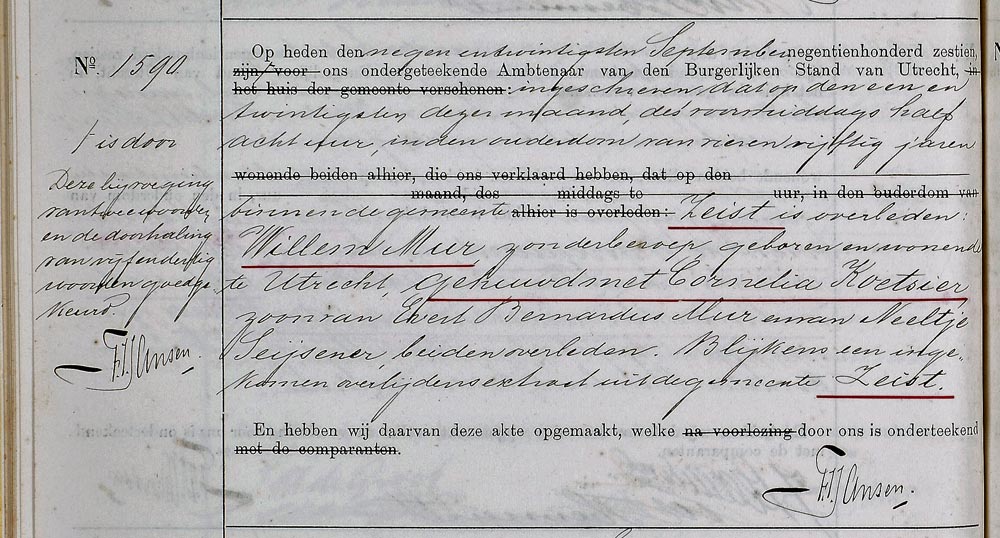 Nº 1590
Op heden den negen en twintigsten September negentienhonderd zestien,
zijn/voor ons ondergeteekende Ambtenaar van den Burgerlijken Stand van Utrecht, in
het huis der gemeente verschenen: ingeschreven, dat op den een en
twintigsten dezer maand, des voormiddags half
acht uur, in den ouderdom van vier en vijftig jaren
wonende beiden alhier, die ons verklaard hebben, dat op den
maand, des middags te uur, in den ouderdom van
binnen de gemeente alhier is overleden: Zeist is overleden:
Willem Mur, zonder beroep, geboren en wonende
te Utrecht, gehuwd met Cornelia Koetsier
zoon van Evert Bernardus Mur en van Neeltje
Seijsener, beiden overleden. Blijkens een inge-
komen overlijdensextract uit de gemeente Zeist.
En hebben wij daarvan deze akte opgemaakt, welke na voorlezing door ons is onderteekend
met de comparanten.
F.J. Jansen.
/ is door
Deze bijvoeging
van twee woorden
en de doorhaling
van vijf en dertig
woorden goedge-
keurd.
F.J. Jansen.